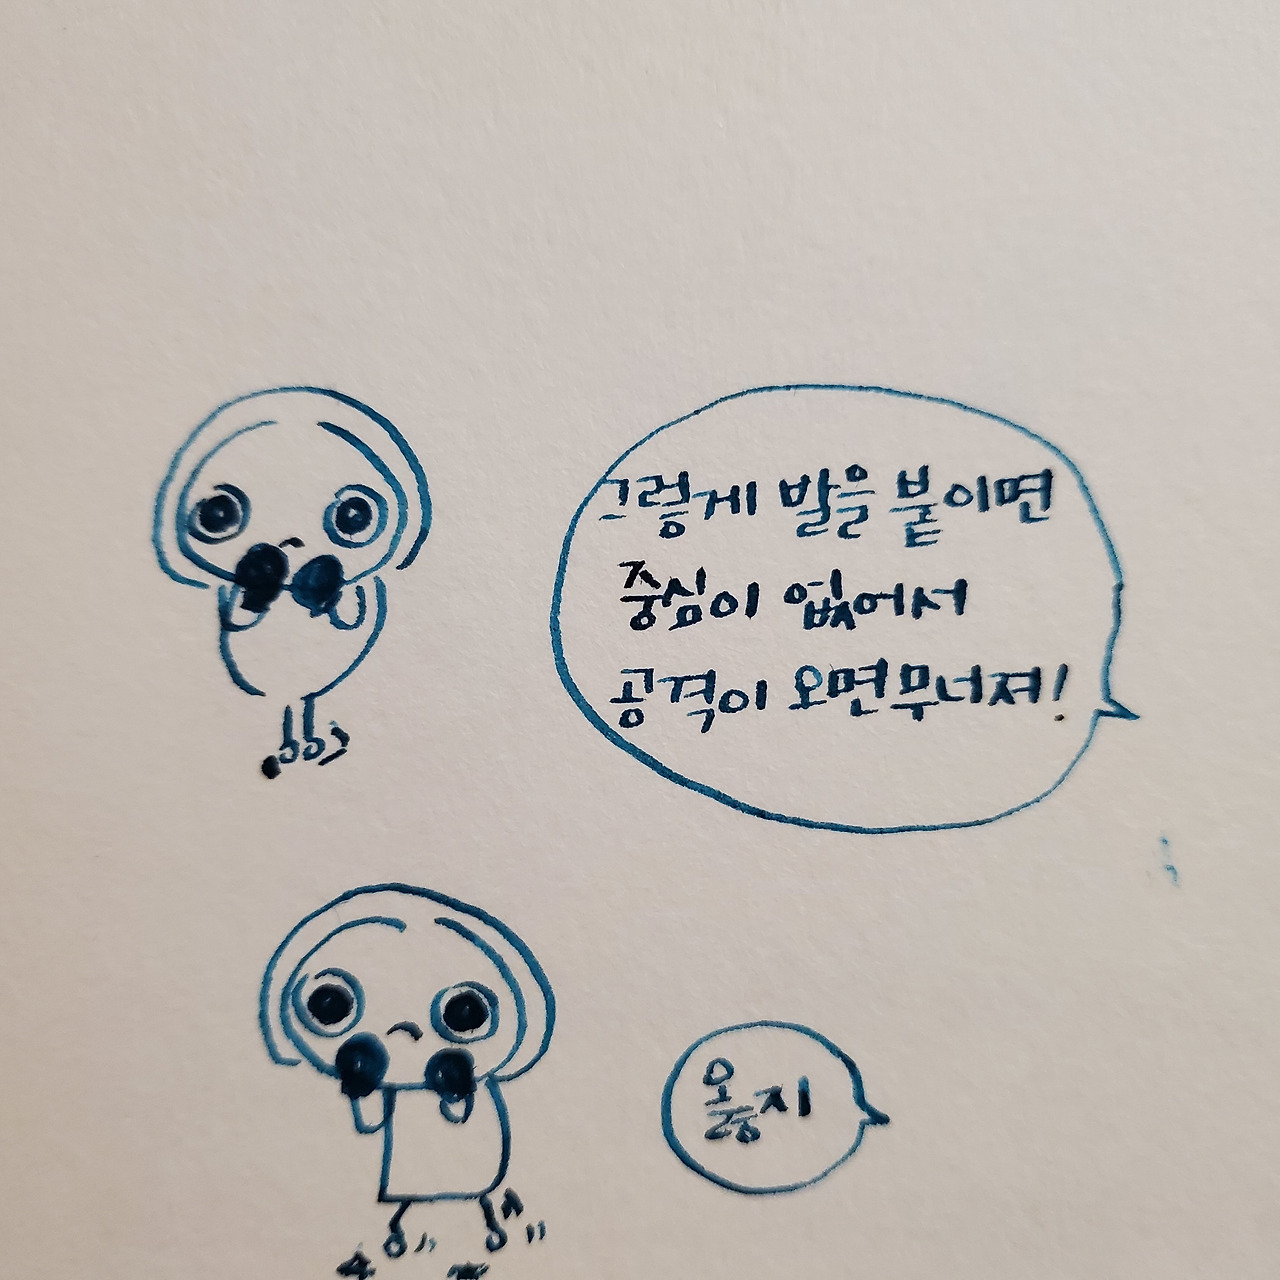 그렇게 발을 붙이면
중심이 없어서
공격이 오면 무너져!
옳지